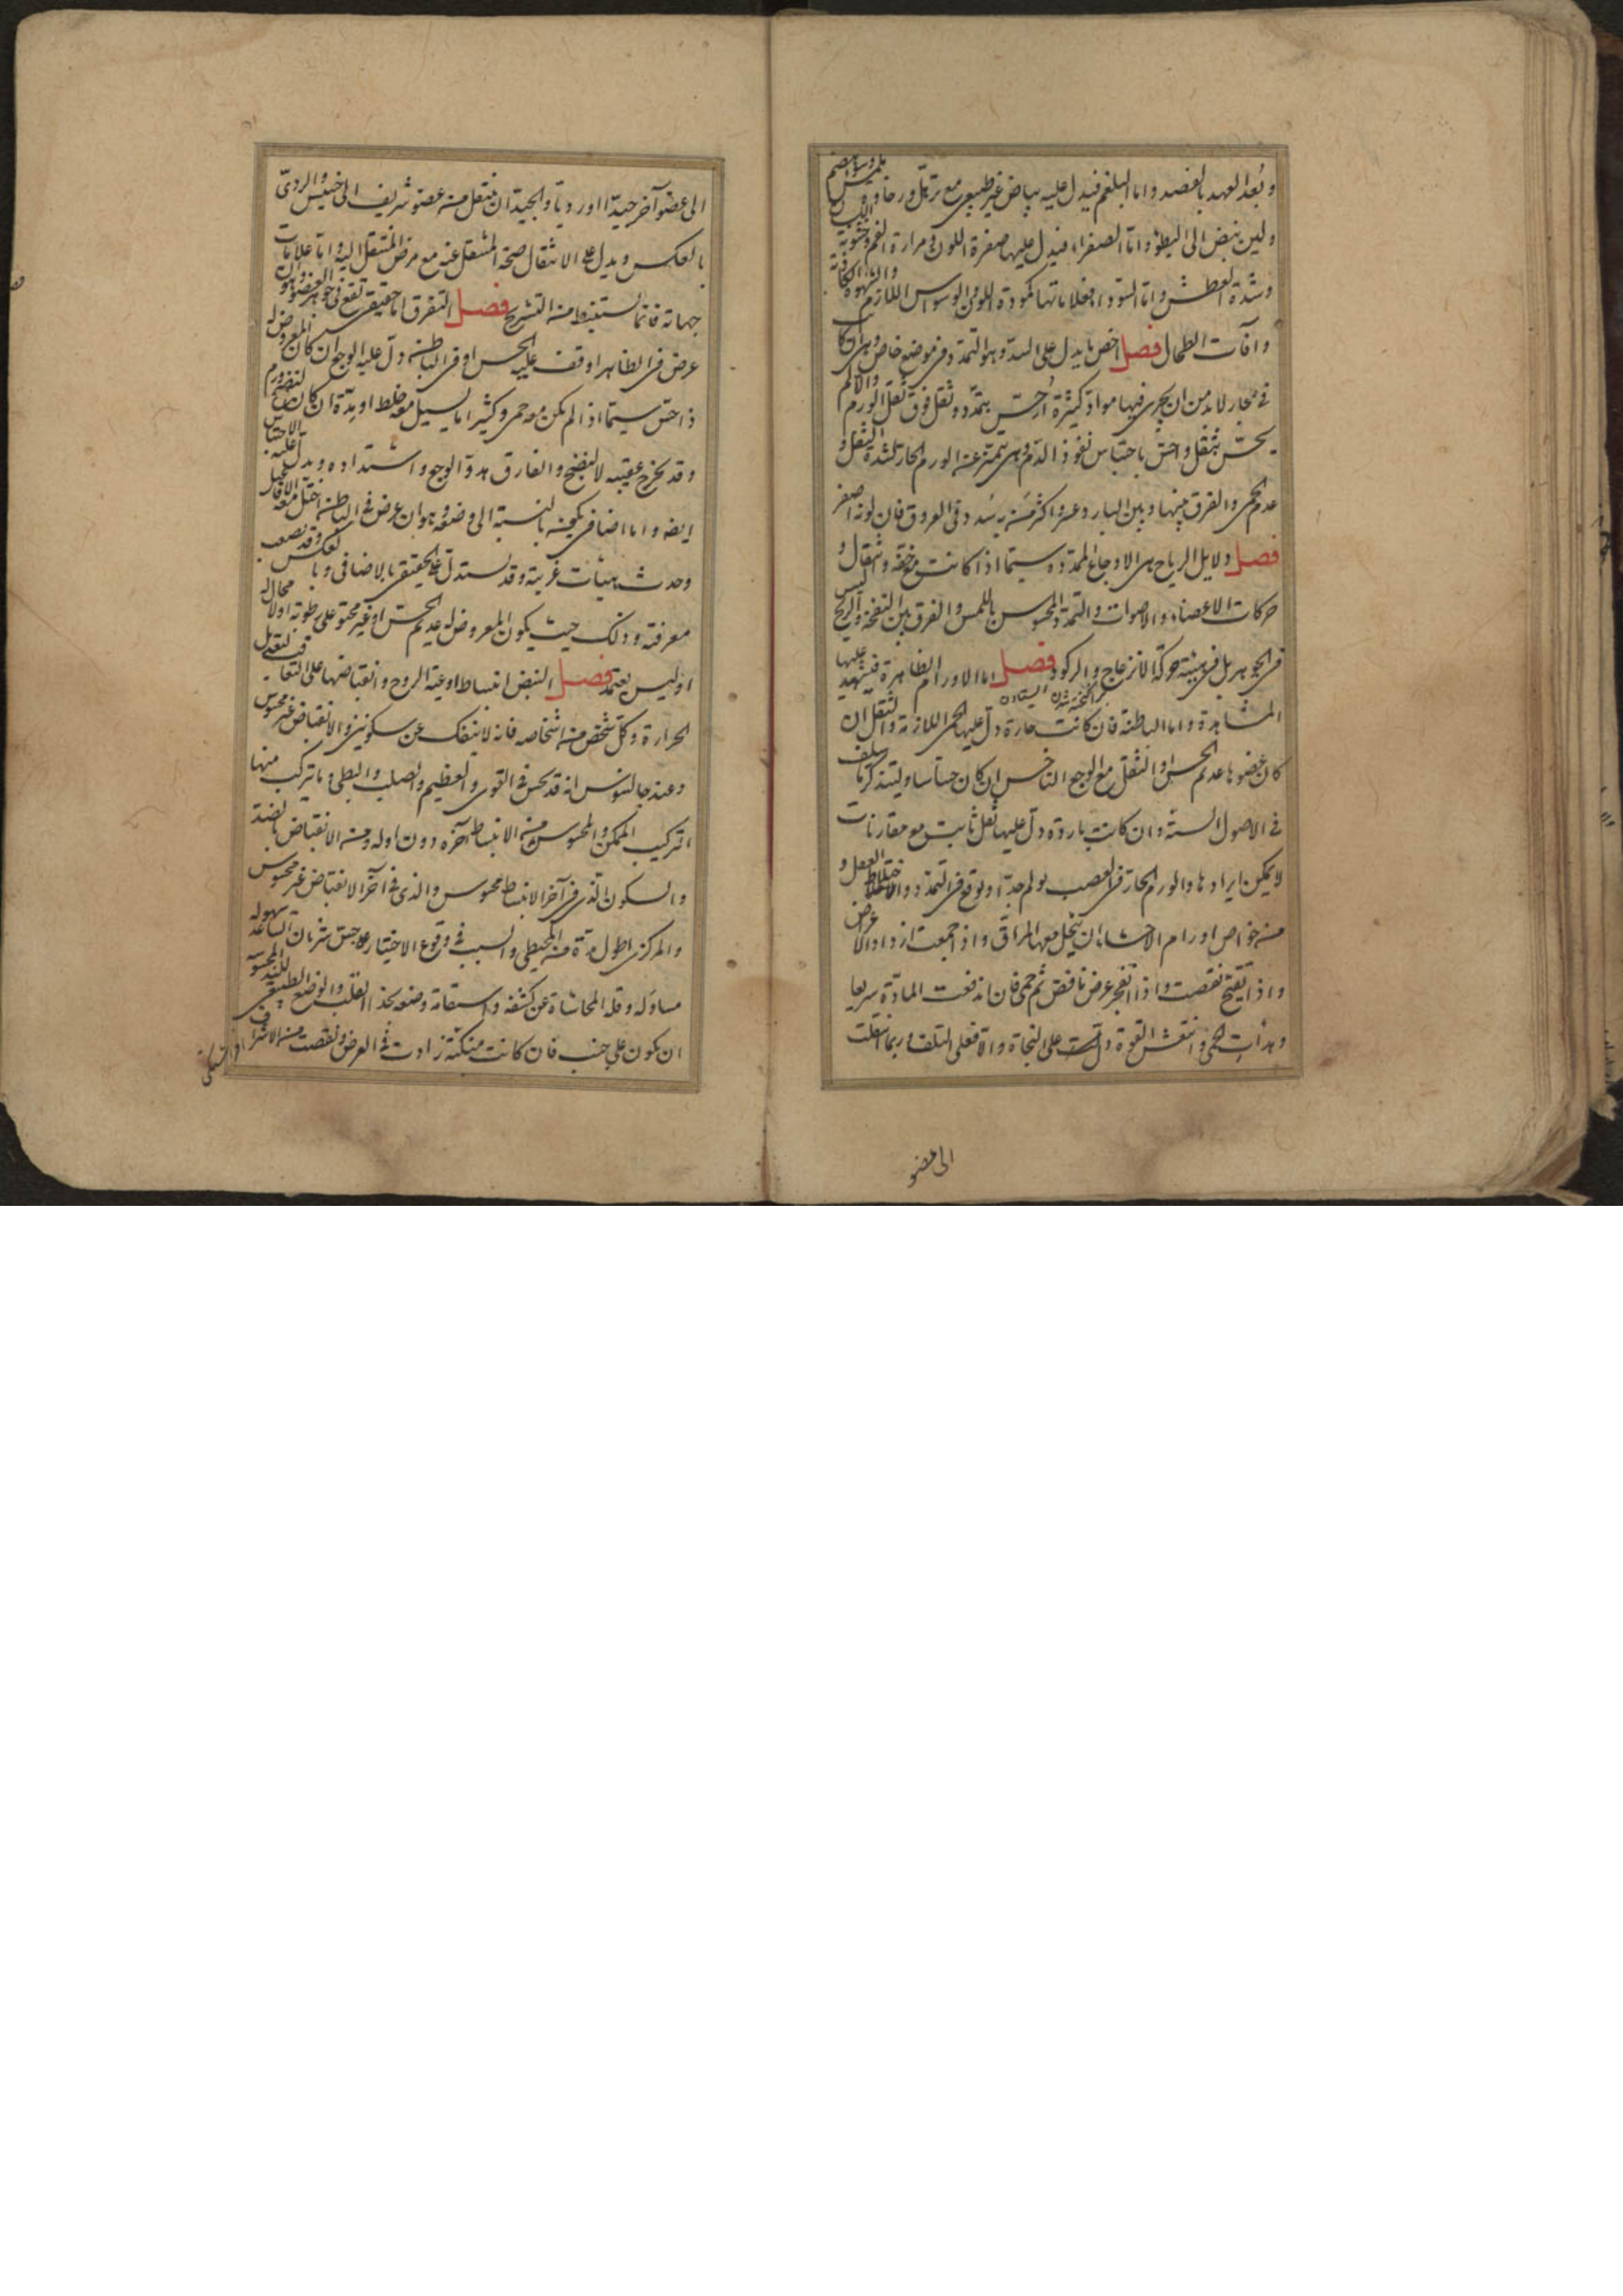 وبُعد العهد بالفصد واما البلغم فيدل عليه بياض غير طبيعي مع ترهل ورخاوة ملمس وسوء هضم
ولين نبض الى البطؤ واما الصفراء فيدل عليها صفرة اللون ومرارة الفم وخشونة اللسان
وشدة العطش واما السوداء فعلاماتها كمودة اللون والوسواس اللازم والشهوة الكاذبة
وآفات الطحال فصل اخص ما يدل على السدة هو التمدد في موضع خاص وهى ان كانت
في مجار لا بد من ان يجرى فيها مواد كثيرة اُحِسّ بتمدد وثقل فوق ثقل الورم والالم
يحسّ بثقل واحسّ باحتباس نفوذ الدم وهى تتميز عن الورم الحار لشدة الثقل و
عدم الحمى والفرق بينها وبين البارد عسر واكثر من به سُدد في العروق فان لونه اصفر
فصل دلايل الرياح هى الاوجاع الممددة سيما اذا كانت مع خفة وانتقال و
حركات الاعضاء والاصوات والتمدد المحسوس باللمس والفرق بين النفخة والريح ليس
في الجوهر بل في هيئة حركة الانزعاج والركود فصل اما الاورام الظاهرة فيشهد عليها
المشاهدة واما الباطنة فان كانت حارة دل عليها الحمى اللازمة والثقل ان
كان عضوها عديم الحس او الثقل مع الوجع الناخس ان كان حساسا وليتذكر ما سلف
في الاصول الستة وان كانت باردة دل عليها ثقل ثابت مع مقارنات
لا يمكن ايرادها والورم الحار في العصب يولم جدّا ويوقع في التمدد واختلاط العقل و
من خواص اورام الاحشاء ان ينحل معها المراق واذا جمعت ازداد الاعراض
واذا تقيح نقصت واذا انفجر عرض نافض ثم حمى فان اندفعت المادة سريعا
وهدأت الحمى وانتعش القوة دلت على النجاة والا فعلى التلف وربما انتقلت
الى عضو
الى عضو آخر جيدا او رديا والجيد ان ينتقل من عضو شريف الى خسيس والردىّ
بالعكس ويدل على الانتقال صحة المنتقل عنه مع مرض المنتقل اليه واما علامات
جهاته فانما يستنبط من التشريح فصل التفرق اما حقيقى يقع في جوهر العضو وهو ان
عرض في الظاهر اوقف عليه الحس او في الباطن دل عليه الوجع ان كان المعروض له
ذا حسّ سيما اذا لم يكن معه حمى وكثيرا ما يسيل معه خلط او مِدّة ان كان
وقد يخرج عقيبه لا لنضج والفارق هدوّ الوجع واشتداده ويدل عليه الاحتباس
ايضه واما اضافى يكون بالنسبة الى وضعه وهو ان عرض في الباطن اختل معه الافاعيل
وحدث هيئات غريبة وقد يستدل على الحقيقى بالاضافى وبالعكس وقد يصعب
معرفته وذلك حيث يكون المعروض له عديم الحس او غير محتو على رطوبة اولا محالة
او ليس يعتمد فصل النبض انبساط اوعية الروح وانقباضها على التعاقب لتعديل
الحرارة وكل شخص من اشخاصه فانه لا ينفك عن سكونين والانقباض غير محسوس
وعند جالينوس انه قد يحس في القوى والعظيم والصلب والبطى وما يتركب منها
التركيب الممكن والمحسوس من الانبساط آخره دون اوله ومن الانقباض بالضد
والسكون الذى في آخر الانبساط محسوس والذى في آخر الانقباض غير محسوس
والمركزى اطول مدة من المحيطى والسبب في وقوع الاختيار على جس شريان الساعد سهولة
متناوله وقلة المحاشاة عن كشفه واستقامة وضعه بحذاء القلب والوضع الطبيعى لليد المجسوسة
ان يكون على جنب فان كانت منكبّة زادت في العرض ونقصت من الاشراف